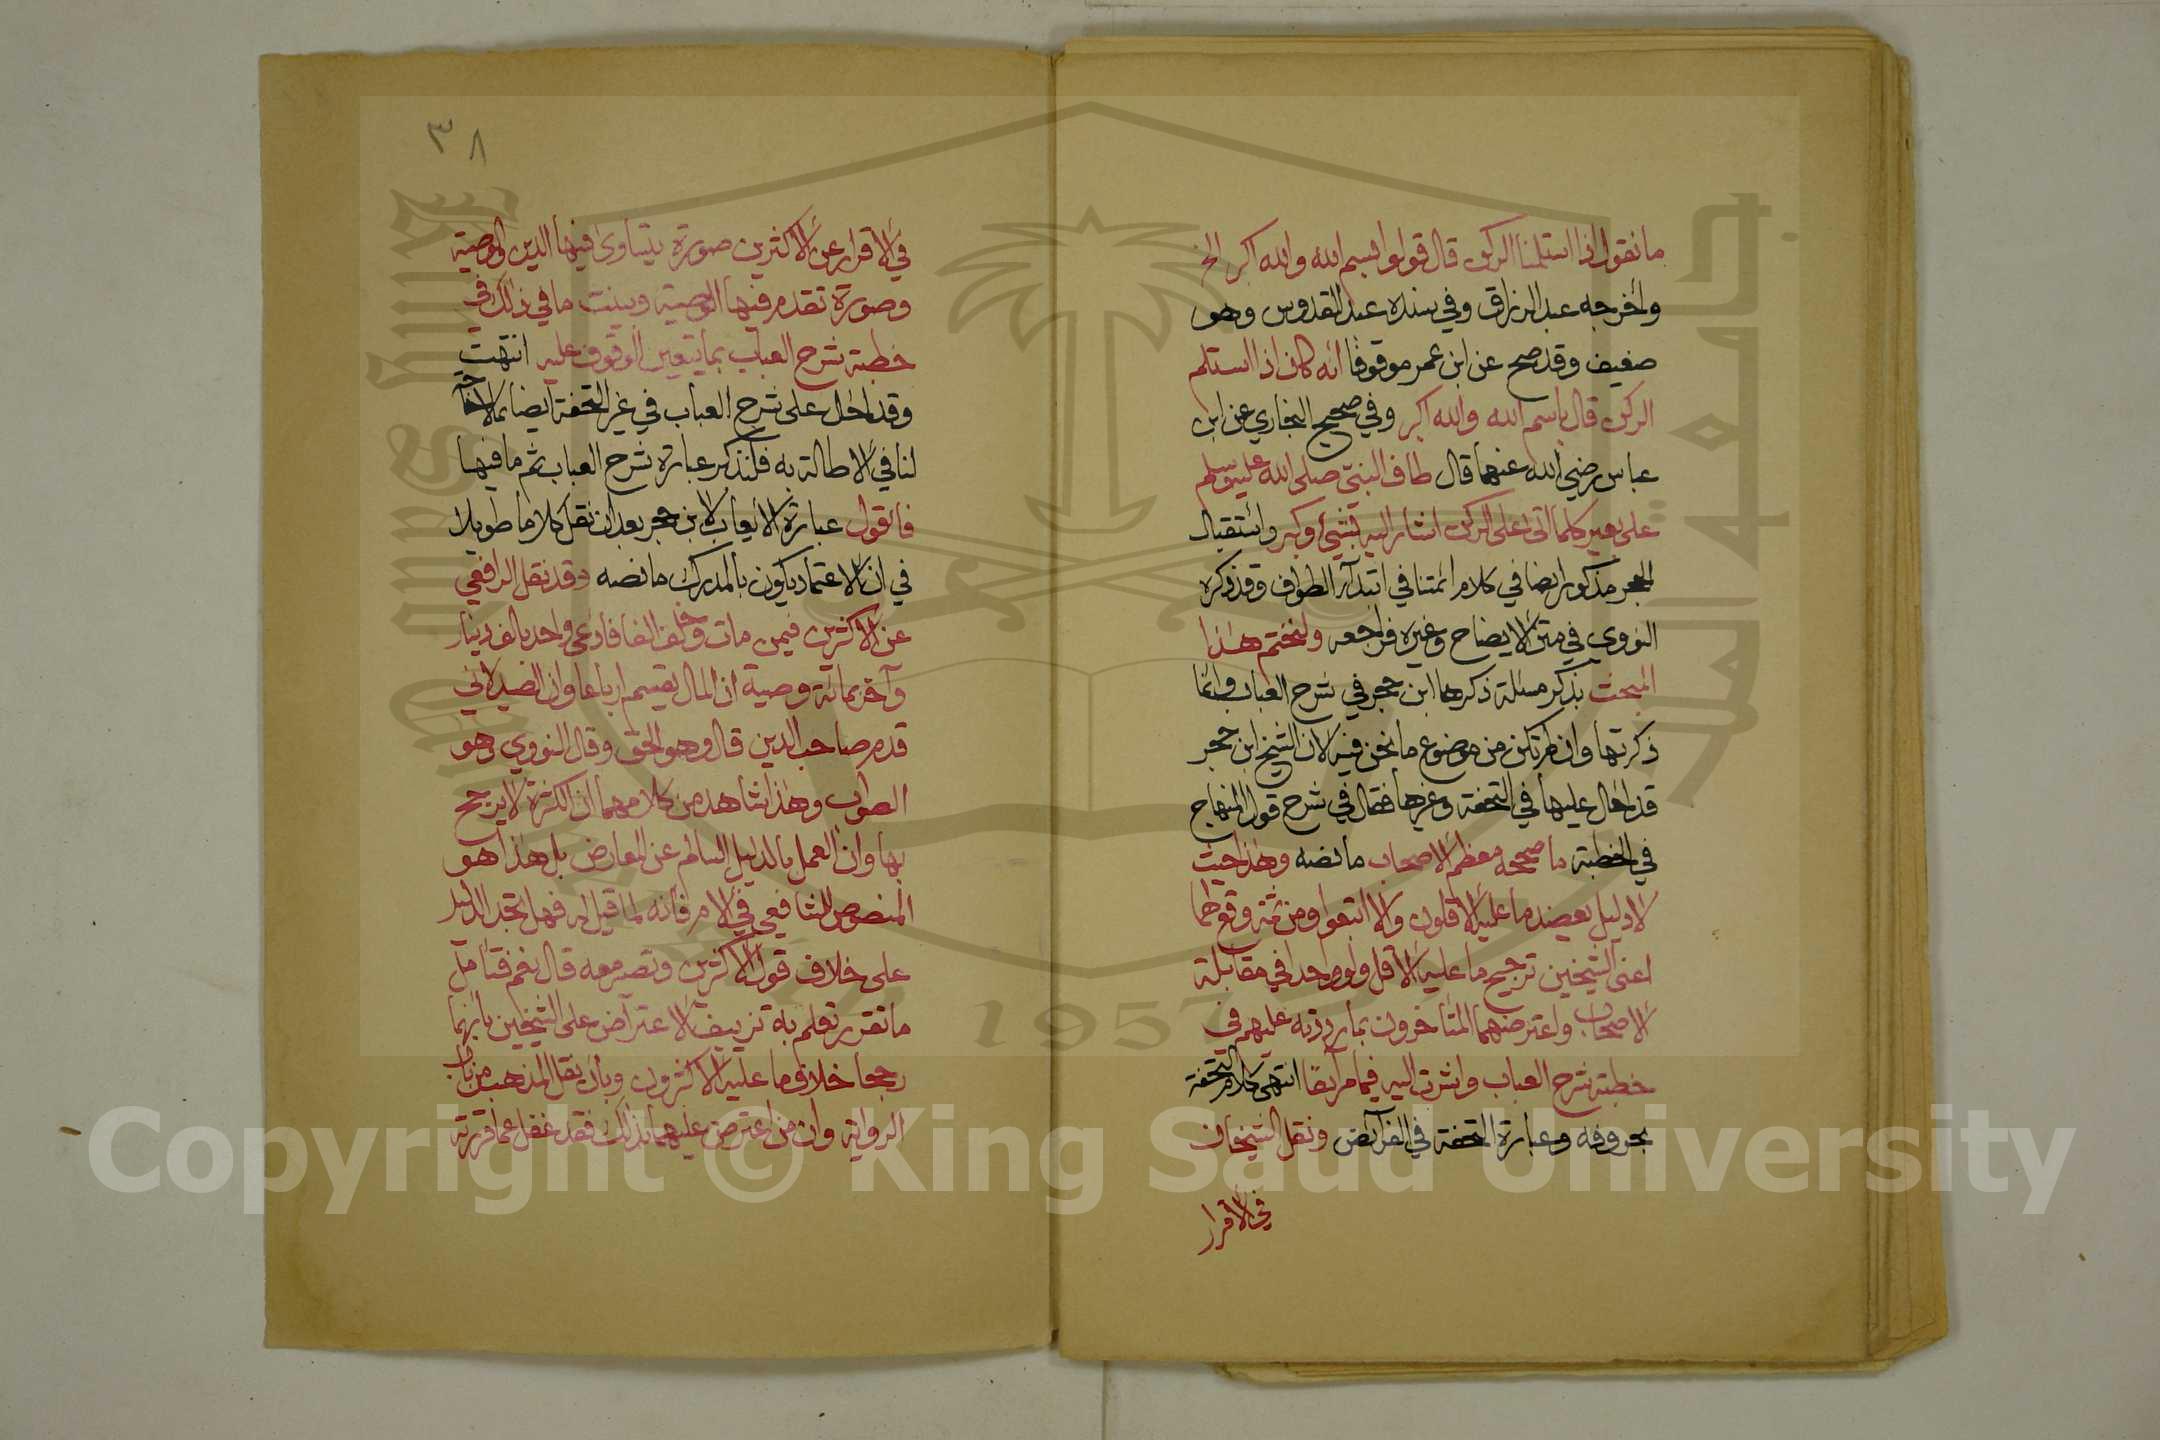 ما نقول اذا استلمنا الركن قال قولوا بسم الله والله اكبر الخ
وأخرجه عبد الرزاق وفي سنده عبد القدوس وهو
ضعيف وقد صح عن ابن عمر موقوفا انه كان اذا استلم
الركن قال باسم الله والله اكبر وفي صحيح البخاري عن ابن
عباس رضي الله عنهما قال طاف النبي صلى الله عليه وسلم
على بعير كلما اتى على الركن اشار اليه بشيئ وكبر واستقبال
الحجر مذكور ايضا في كلام ائمتنا في ابتدآء الطواف وقد ذكره
النووي في متن الايضاح وغيره فراجعه ولنختم هذا
المبحث بذكر مسئلة ذكرها ابن حجر في شرح العباب وانما
ذكرتها وان لم تكن من موضوع ما نحن فيه لان الشيخ ابن حجر
قد احال عليها في التحفة وغيرها فقال في شرح قول المنهاج
في الخطبة ما صححه معظم الاصحاب ما نصه وهذا حيث
لا دليل يعضد ما عليه الاقلون والا اتبعوا ومن ثمة وقع لهما
اعني الشيخين ترجيح ما عليه الاقل ولو واحدا في مقابلة
الاصحاب واعترضهما المتأخرون بما رددته عليهم في
خطبة شرح العباب واشرت اليه فيما مر آنفا انتهى كلام التحفة
بحروفه وعبارة التحفة في الفرآئض ونقل الشيخان
في الاقرار
٣٨
في الاقرار عن الاكثرين صورة يتساوى فيها الدين والوصية
وصورة تقدم فيها الوصية وبينت ما في ذلك في
خطبة شرح العباب بما يتعين الوقوف عليه انتهت
وقد احال على شرح العباب في غير التحفة ايضا بما لا حاجة
لنا في الاطالة به فلنذكر عبارة شرح العباب ثم ما فيها
فائقول عبارة الايعاب لابن حجر بعد ان نقل كلاما طويلا
في ان الاعتماد يكون بالمدرك ما نصه وقد نقل الرافعي
عن الاكثرين فيمن مات وخلف الفا فادعى واحد بالف دينار
وآخر بمائة وصية ان المال يقسم ارباعا وان الصيدلاني
قدم صاحب الدين قال وهو الحق وقال النووي وهو
الصواب وهذا شاهد من كلامهما ان الكثرة لا يرجح
بها وان العمل بالدليل السالم عن المعارض بل هذا هو
المنصوص للشافعي في الام فانه لما قيل له فهل تجد الدليل
على خلاف قول الاكثرين وتصر معه قال نعم فتأمل
ما تقرر تعلم به تزييف الاعتراض على الشيخين بانهما
رجحا خلاف ما عليه الاكثرون وبان نقل المذهب من باب
الرواية وان من اعترض عليهما بذلك فقد غفل عما قررته
Copyright © King Saud University
King Saud University
جامعة الملك سعود
1957